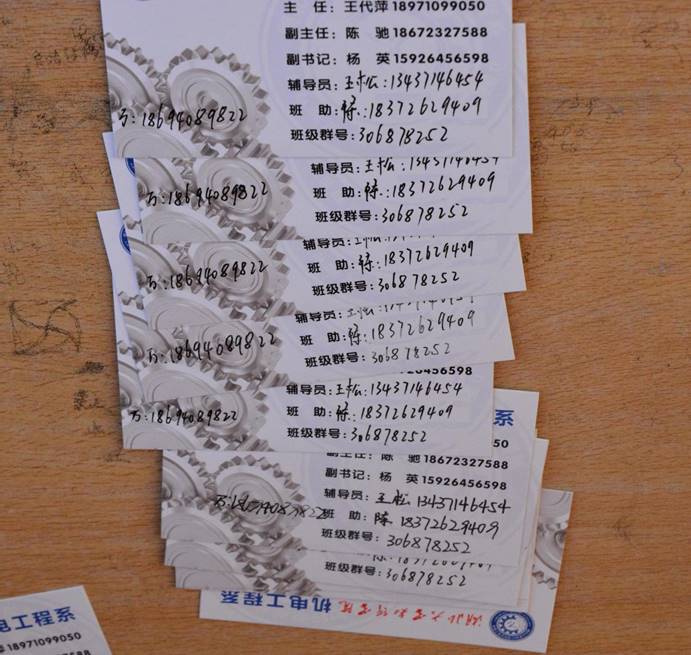 主 任：王代萍 18971099050
副主任：陈 驰 18672327588
副书记：杨 英 15926456598
辅导员：王松：13437146454
班 助：徐：18372629409
万：18694089822
班级群号：306878252
辅导员：王松：13437146454
班 助：徐：18372629409
万：18694089822
班级群号：306878252
辅导员：
班 助：徐：18372629409
万：18694089822
班级群号：306878252
辅导员：
班 助：徐：18372629409
万：18694089822
班级群号：306878252
辅导员：王松：13437146454
班 助：徐：18372629409
万：18694089822
班级群号：306878252
系
50
副主任：陈 驰 18672327588
副书记：杨 英 15926456598
辅导员：王松 13437146454
班 助：陈 18372629409
班级群号：306878252
18372629409
班级群号：306878252
机电工程系
电工程系
18971099050